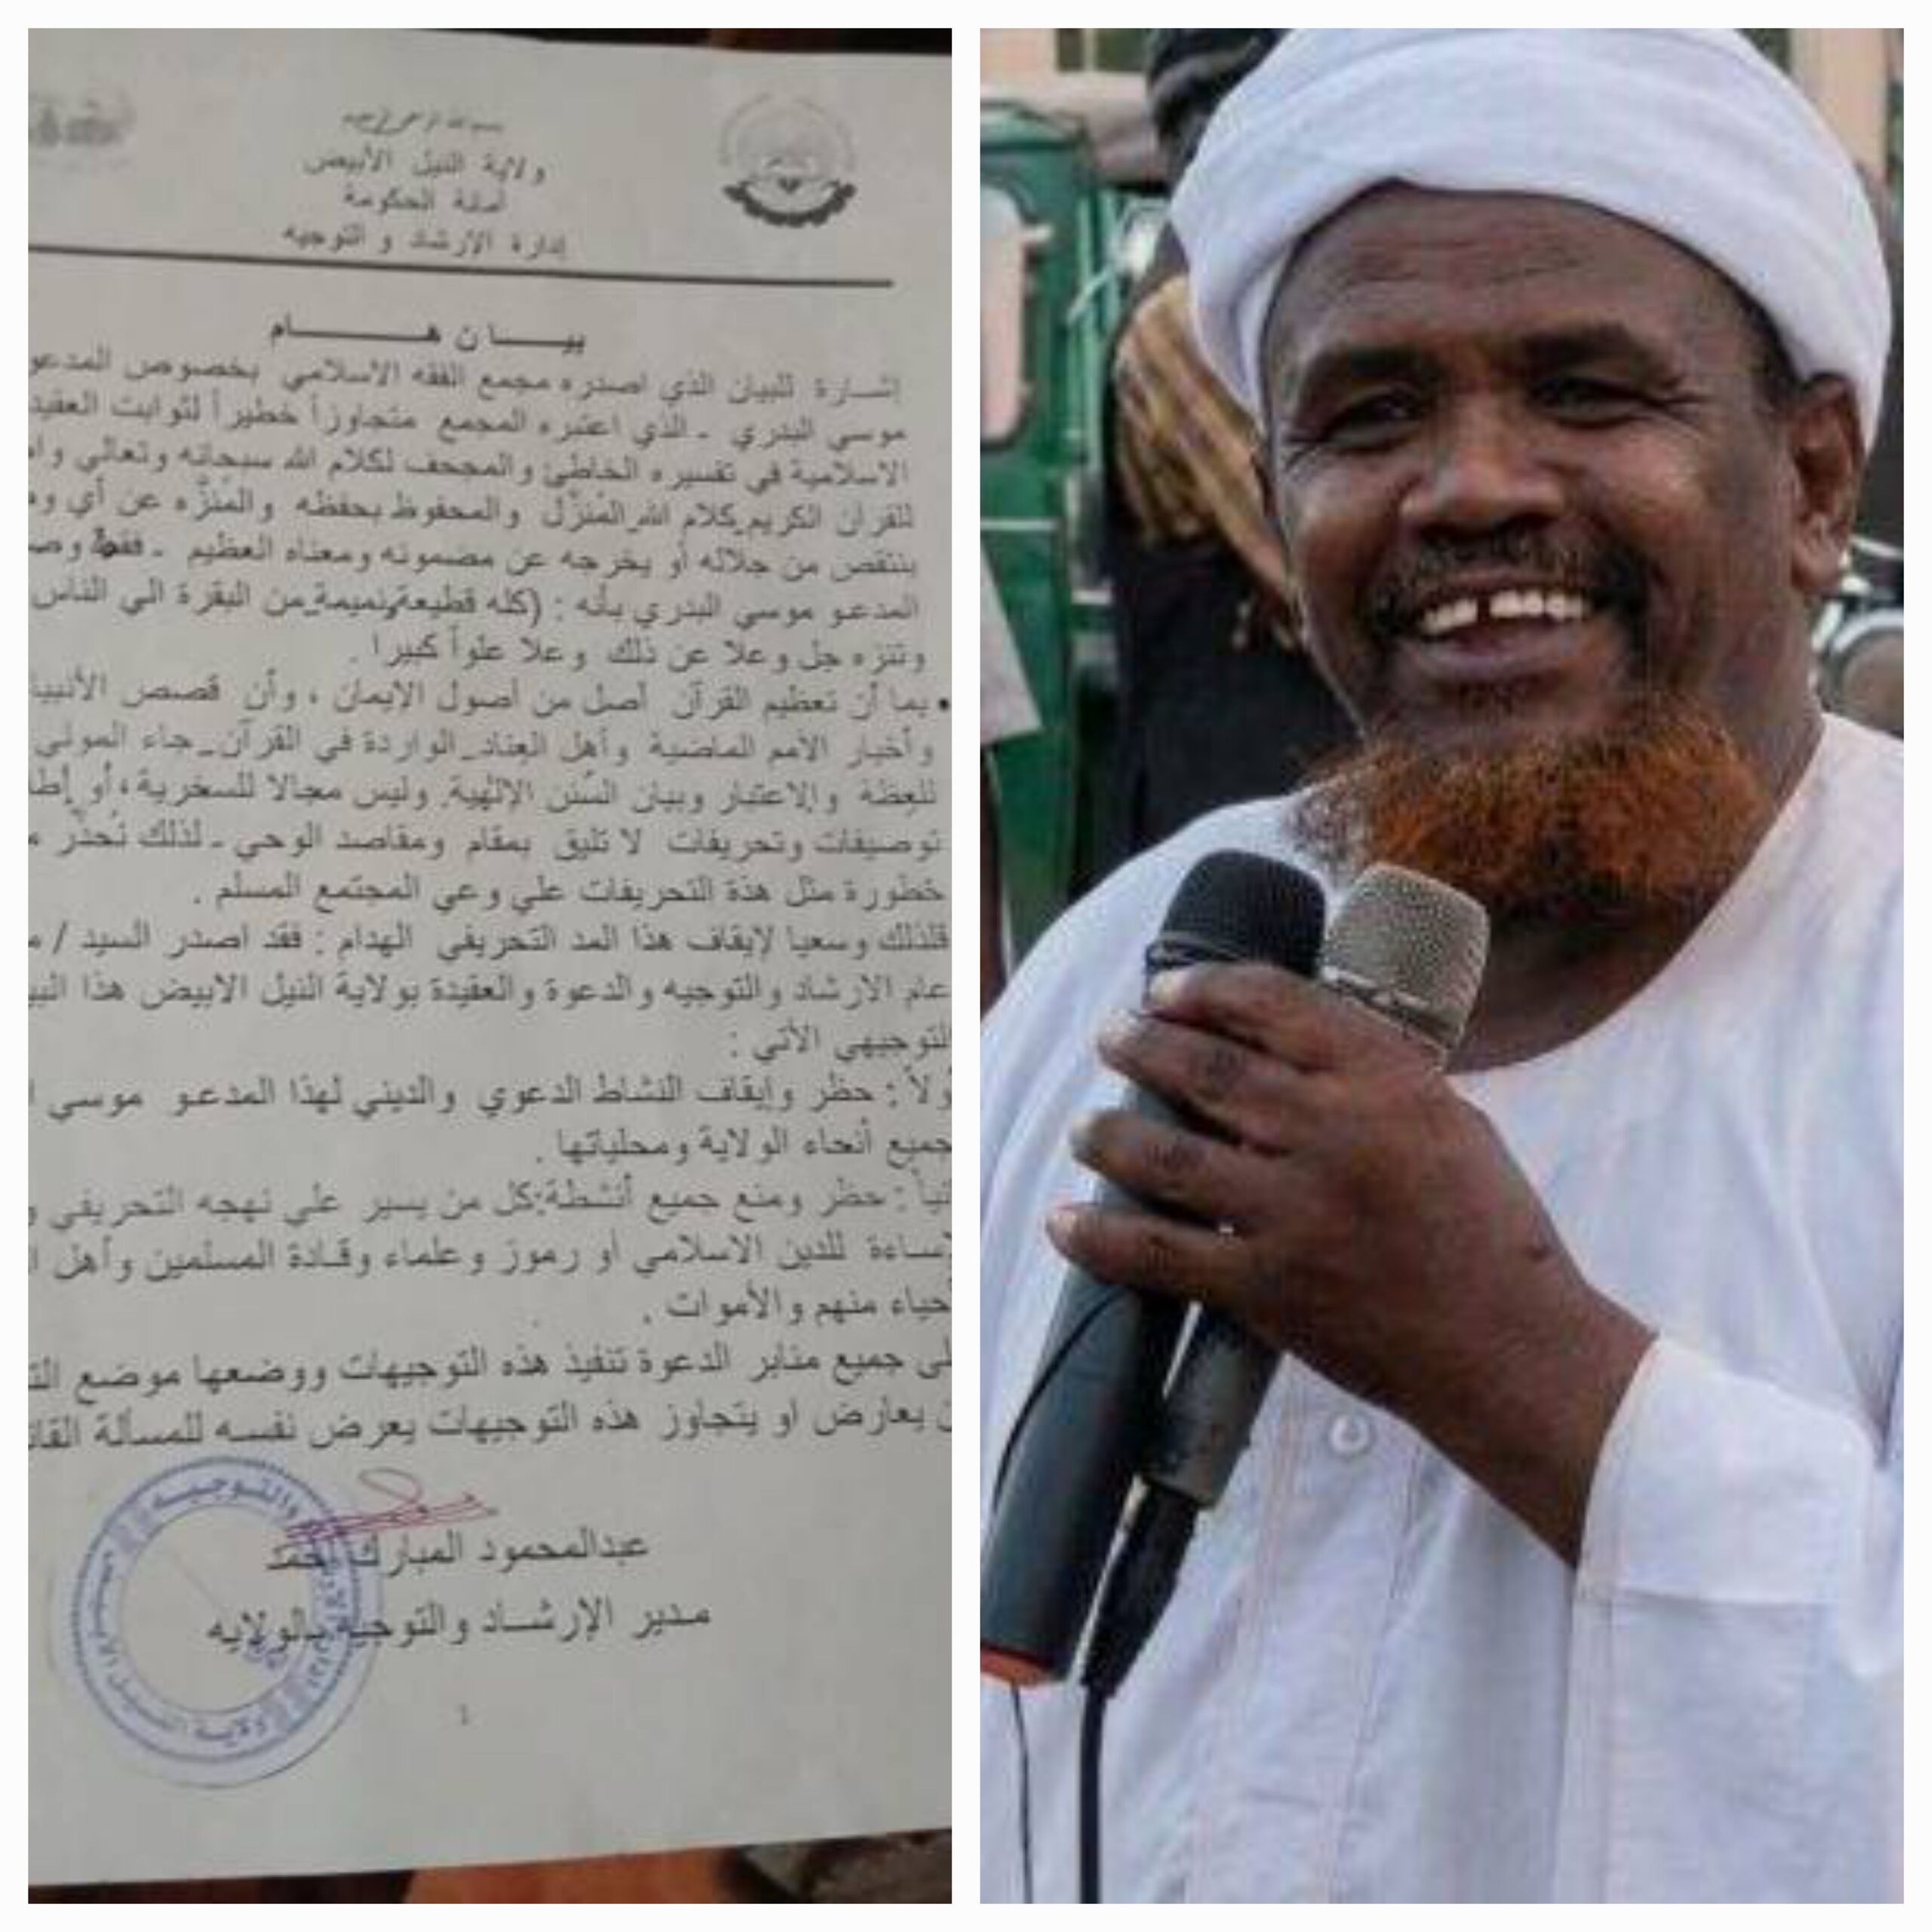 بسم الله الرحمن الرحيم
ولاية النيل الأبيض
أمانة الحكومة
إدارة الإرشاد و التوجيه
بيـــــان هـــــــــام
إشـــارة للبيان الذي اصدره مجمع الفقه الاسلامي بخصوص المدعو
موسي البدري - الذي اعتبره المجمع متجاوزاً خطيراً لثوابت
الاسلامية في تفسيره الخاطئ والمجحف لكلام الله سبحانه وتعالي
للقران الكريم كلام الله المُنزَّل والمحفوظ بحفظه والمُنزَّه عن أي
ينتقص من جلاله أو يخرجه عن مضمونه ومعناه العظيم - فقط
المدعو موسي البدري بأنه : (كله قطيعة نميمة من البقرة الي الناس
وتنزه جل وعلا عن ذلك وعلا علواً كبيرا .
• بما أن تعظيم القرآن أصل من أصول الإيمان ، وأن قصص
وأخبار الأمم الماضية وأهل العِناد الواردة في القرآن جاء
للعِظة والاعتبار وبيان السُّنن الإلهية وليس مجالا للسخرية ، أو
توصيفات وتحريفات لا تليق بمقام ومقاصد الوحي - لذلك نُحذّر
خطورة مثل هذة التحريفات علي وعي المجتمع المسلم .
فلذلك وسعيا لإيقاف هذا المد التحريفي الهدام : فقد اصدر السيد /
عام الارشاد والتوجيه والدعوة والعقيدة بولاية النيل الابيض هذا
التوجيهي الأتي :
حظر وإيقاف النشاط الدعوي والديني لهذا المدعو موسي
جميع أنحاء الولاية ومحلياتها .
حظر ومنع جميع أنشطة كل من يسير علي نهجه التحريفي
للدين الاسلامي او رموز وعلماء وقادة المسلمين وأهل
منهم والأموات .
جميع منابر الدعوة تنفيذ هذه التوجيهات ووضعها موضع
يعارض او يتجاوز هذه التوجيهات يعرض نفسه للمسألة
عبدالمحمود المبارك احمد
مدير الإرشــاد والتوجيه بالولايه
1